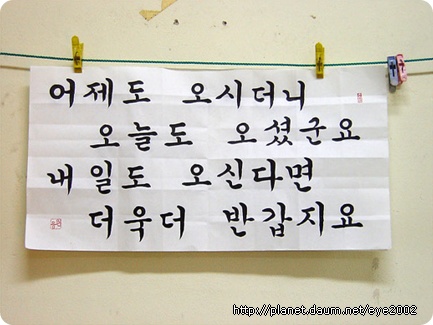 어제도 오시더니
오늘도 오셨군요
내일도 오신다면
더욱더 반갑지요
http://planet.daum.net/eye2002